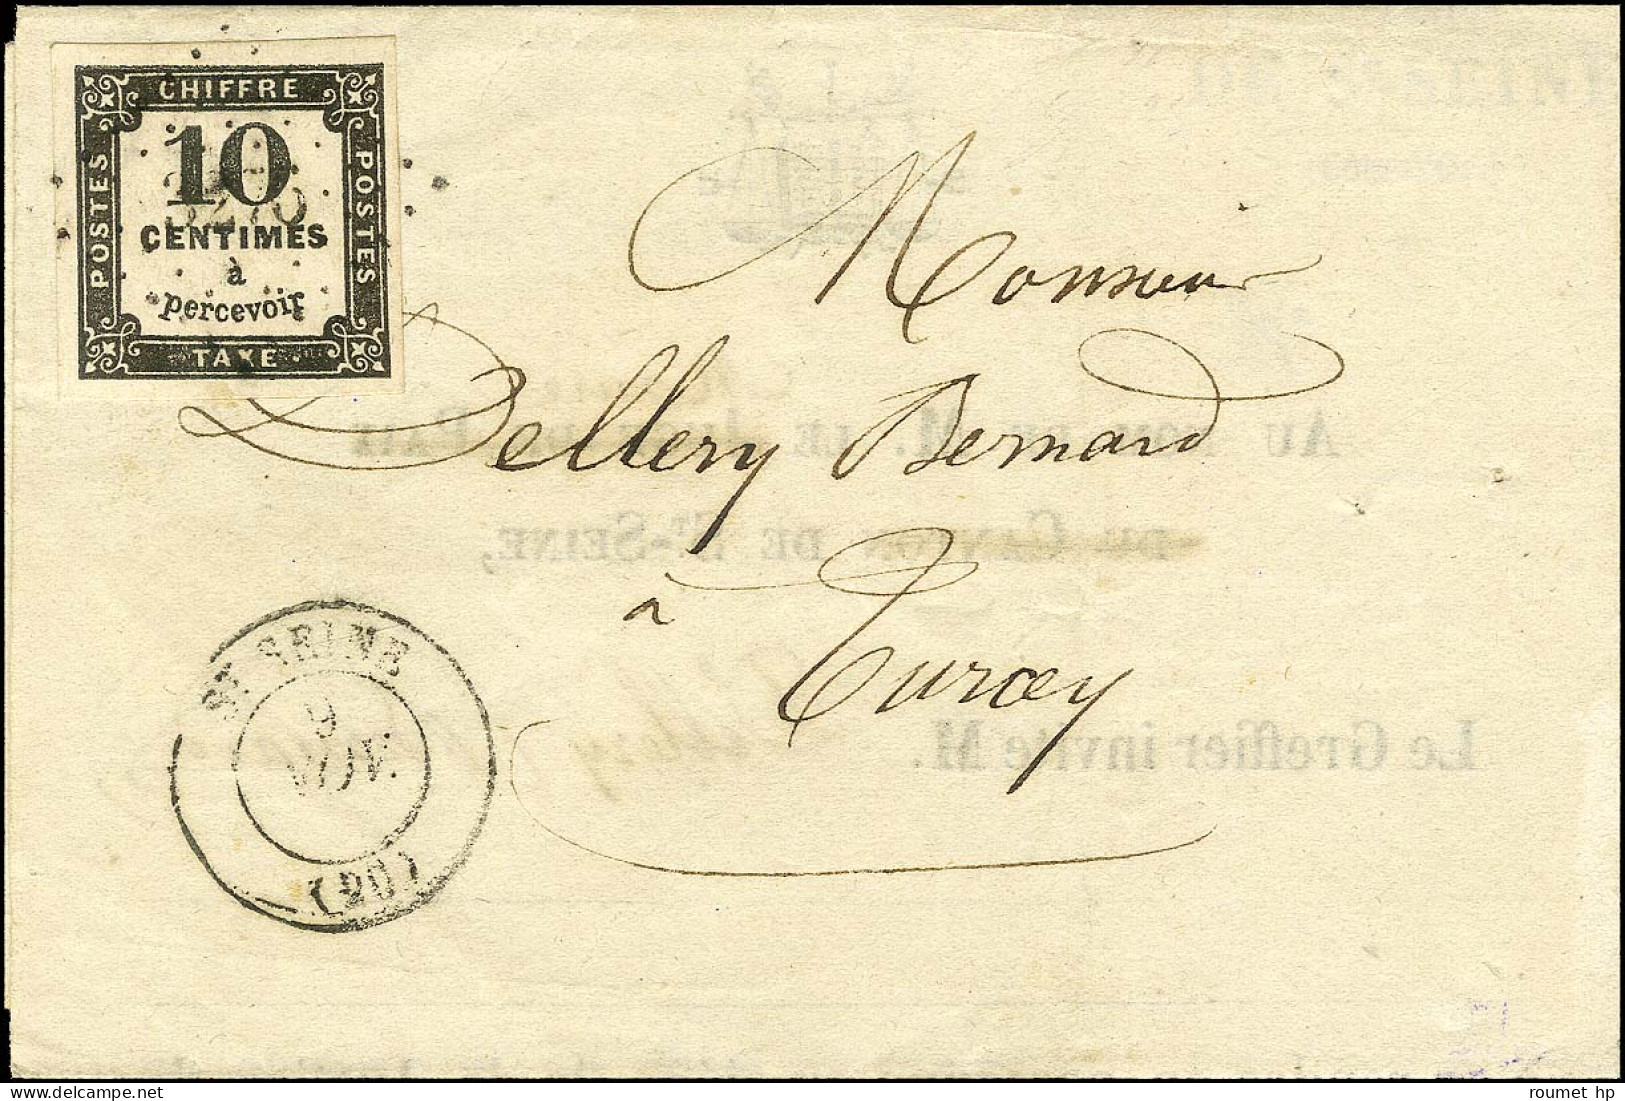 CHIFFRE
POSTES
POSTES
10
CENTIMES
à
percevoir
TAXE
Monsieur
Dellery Bernard
à Turcey
AU NOM DE M. LE JUGE DE PAIX
DU CANTON DE ST-SEINE,
Le Greffier invite M.
ST SEINE
9
NOV.
(20)
roumet hp